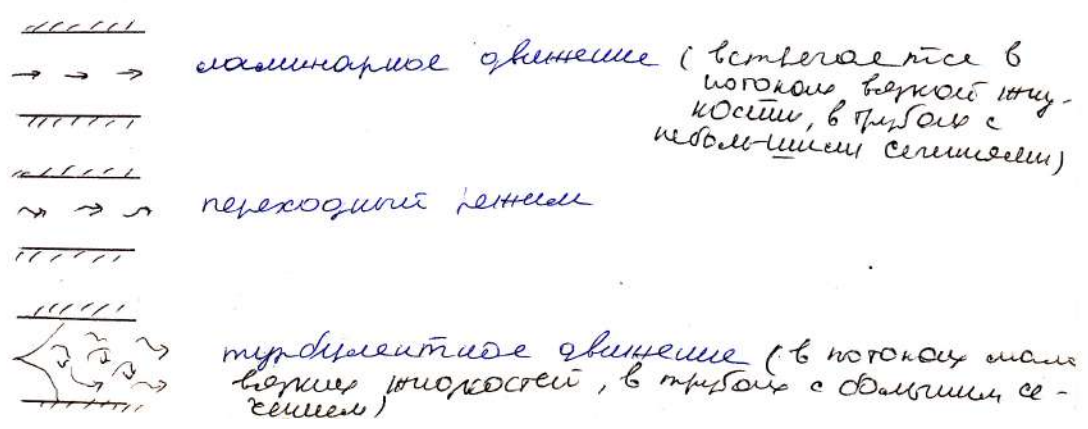 ламинарное движение (встречается в
потоках вязкой жид-
кости, в трубах с
неболь-шими сечениями)
переходный режим
турбулентное движение (в потоках мало
вязких жидкостей, в трубах с большим се-
чением)